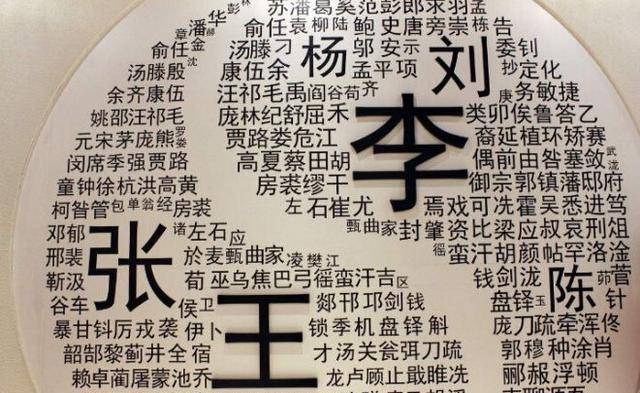 彭
苏潘葛奚范彭郎
潘华
俞任袁柳陆鲍史唐旁崇栋告
章金
俞任
汤滕刁
杨
邬安示
刘
委钊
沈
汤滕殷
康伍余
孟平项
抄定化
余齐康伍
汪祁毛禹阎谷荀齐
庚务敏捷
姚邵汪祁毛
庞林纪舒屈禾
李
类卯俟鲁答乙
元宋茅庞熊
贾路娄危江
裔延植环矫赛
闵席季强贾路
高夏蔡田胡
偶前由昝塞敛
童钟徐杭洪高黄
房裘缪干
御宗郭镇藩邸府
柯昝管包单翁经房裘
左石崔尤
焉戏可冼霍吴悉进笃
邓郁
张
诸左石应
甄曲家封肇资比梁应叔哀刑
邢裴
於麦甄曲家凌樊江
徭蛮汗胡颜帖罕洛淦
靳汲
荀巫乌焦巴弓徭蛮汗吉区
钱剑泷
陈
菅
谷车
侯卫
王
郯邗邛剑钱
盘铎玉
针
暴甘钭厉戎袭伊卜
锁季机盘铎斛
庞刀疏牵浑佟
韶郜黎蓟井全宿
才汤关瓮弭刀疏
郭穆种涂肖
赖卓蔺屠蒙池乔
龙卢顾止戢睢冼
郦郝浮顿